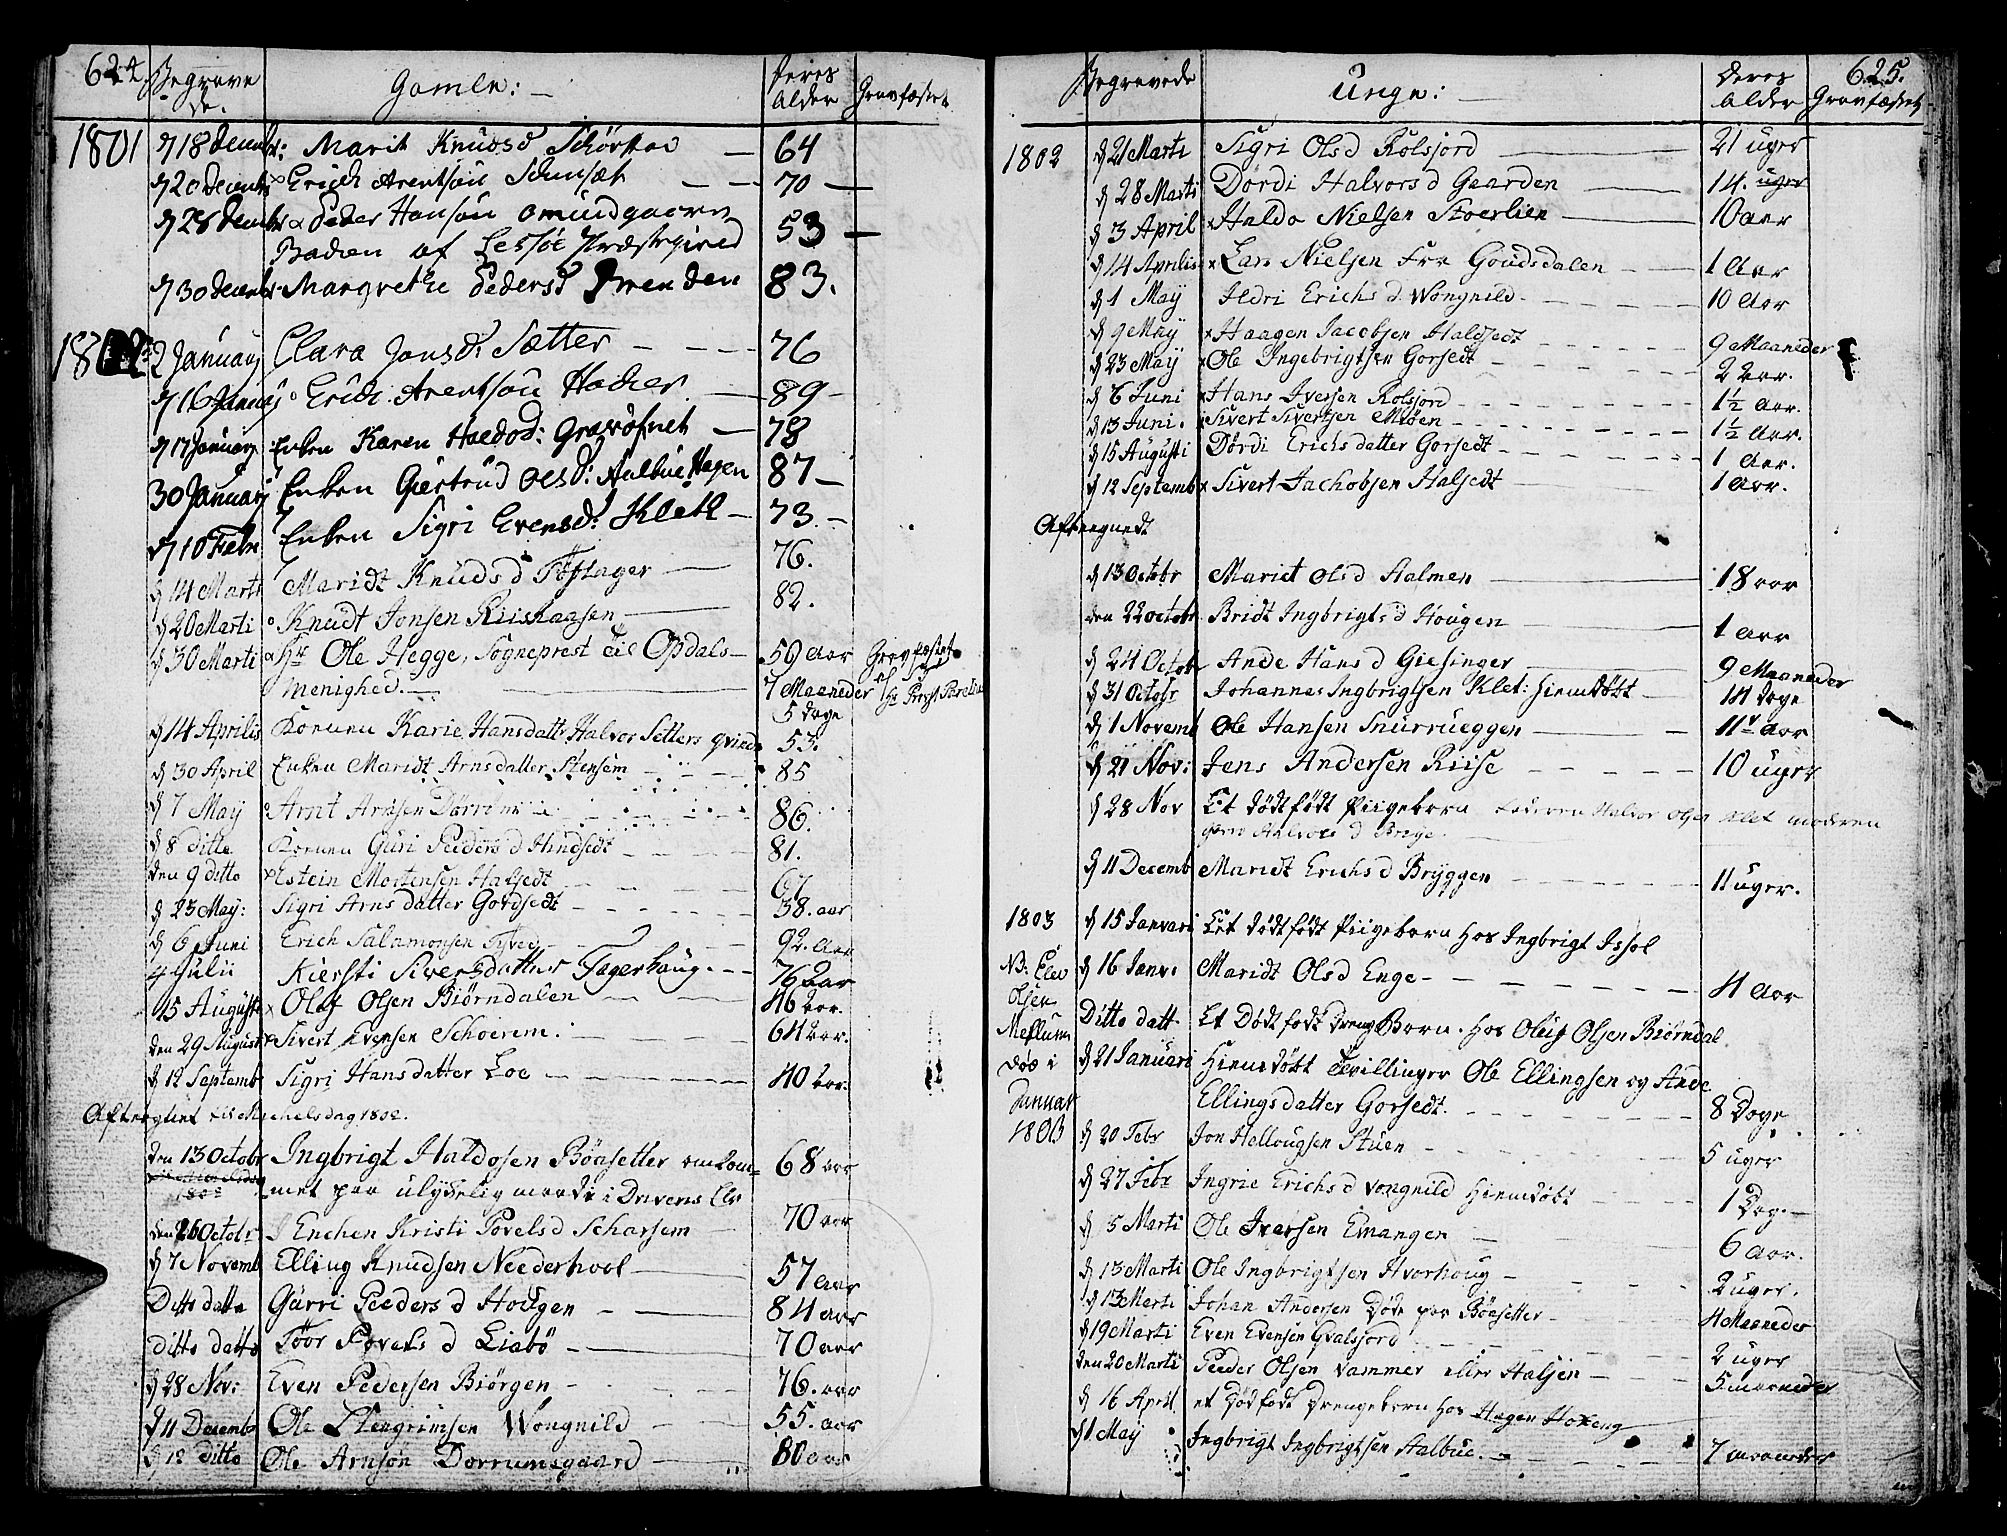 624
Begrave
de.
Gamle:
Deres
Alder
Gravfæstet
1801
d 18 Decembr: Marit Knudsd 64
d 20 Decembr Erich Arentsøn 70
d 28 Decembr Peder Hansøn Omundgaarn
af Lessøe Præstegield 53
d 30 Decembr Margrethe Pedersd 83.
1802
2 Januarj Clara Jonsd: Sætter 76
d 16 Januarj Erich Arentsøn Hacker 89
d 17 Januarj Enken Karen Haldod: 78
30 Januarj Enken Giertrud Olsd: Aalbue Hagen 87
d 10 Febr Enken Sigri Evensd: Kleth 73.
d 14 Marti Maridt Knudsd 76.
d 20 Marti Knudt Jonsen Riishaagen 82.
d 30 Marti Hr Ole Hegge, Sogneprest til Opdals 50 Aar Gravfæstet
Menighed. 7 Maaneder af
5 Dage
d 14 Aprilis Konnen Karie Hansdatter Halvor Setters qvinde 53.
d 30 April Enken Maridt Arnsdatter Stensem 85
d 7 May Arnt Arnsen 86.
d 8 ditto Konnen Guri Peedersd Hindsedt 81.
den 9 ditto Estein Mortensen Halsedt 67
d 23 May: Sigri Arnsdatter Gorsedt 38. aar
d 6 Juni Erich Salamonsen 92. Aar
4 Julii Kiersti Siversdatter Fagerhaug. 76 Aar
15 Augusti Oluf Olsen Biørndalen 46 Aar.
den 29 August Sivert Evensen Schorem. 64 Aar.
d 12 Septemb Sigri Hansdatter Loe 40 Aar.
til Michelsdag 1802.
den 13 Octobr Ingbrigt Haldosen Bøasetter omkom=
met paa ulykkelig maade i Drivens Elv 68 aar
den 26 Octobr Enchen Kristi Povelsd Scharsem 70 aar
d 7 Novemb Elling Knudsen Nederhool 57 aar
Ditto datto Gurri Peedersd Hougen 84 aar
ditto datto Povelsd Liabø 70 aar
d 28 Nov: Even Pedersen Biørgen 76. aar
d 11 Decembr Ole Wongnild 55. aar
d 12 ditto Ole Arnsøn Dorrumsgaard 80 aar
Begravede
Unge:
Deres
Alder
625.
Gravfæstet
1802
d 21 Marti Sigri Olsd Rolsjord 21 uger
d 28 Marti Dordi Halvorsd Gaarden 14. uger
d 3 April Haldo Nielsen Stoerlien 10 aar
d 14 Aprilis Lars Nielsen Fra Goudsdalen 1 Aar
d 1 May Ildri Erichsd Wongnild. 10 Aar
d 9 May Haagen Jacobsen Halsedt 9 Maaneder
d 23 May Ole Ingebrigtsen Gorsedt 2 Aar.
d 6 Juni Hans Iversen Rolsjord 1½ Aar.
d 13 Juni. Sivert Sivertsen Moen 1½ Aar.
d 15 Augusti Dordi Erichsdatter Gorsedt 1 Aar.
d 12 Septemb Sivert Jachobsen Halsedt 1 Aar.
d 13 Octobr Mariet Olsd Aalmen 18 aar
den 22 octobr Bridt Ingbrigtsd Hougen 1 Aar
d 24 Octob Ande Hansd Giesinger 9 Maaneder
d 31 Octobr Johannes Ingbrigtsen Klet: hiemdøbt 14 Dage
d 1 Novemb Ole Hansen Snurrueggen 11 Aar
d 21 Nov: Jens Andersen Riise 10 uger
d 28 Nov Et dødfødt Piigebarn Faderen Halvor Olsen Klet moderen
Halvorsd
d 11 Decemb Maridt Erichsd Bryggen 11 uger.
1803
d 15 Januari Et dødfødt Piigebarn hos Ingbrigt
NB: Elev
Olsen
Mellum
død i
Januar
1803
d 16 Janv: Maridt Olsd Enge 4 Aar
Ditto datt Et Dødfødt Dreng Barn. hos Oluf Olsen Biørndal.
d 21 Januari Hiemdøbt Tvillinger Ole Ellingsen og Ande
Ellingsdatter Gorsedt. 8 Dage
d 20 Febr Jon Hellougsen Stuen 5 uger
d 27 Febr Ingrie Erichsd Vongnild Hiemdøbt 1 Dag.
d 5 Marti Ole Iversen Emangen 6 Aar.
d 13 Marti Ole Ingbrigtsen Hvorhoug 2 uger.
d 13 Marti Johan Andersen Døde paa Bøasetter 4 Maaneder
d 19 Marti Even Evensen Gvalsjord 2 uger
den 20 Marti Peeder Olsen Vammer eller Halsen 5 maaneder
d 16 April et Dødfødt Drengebarn hos Hagen
d 1 May Ingbrigt Ingbrigtsen Aalbue. 7 maaneder